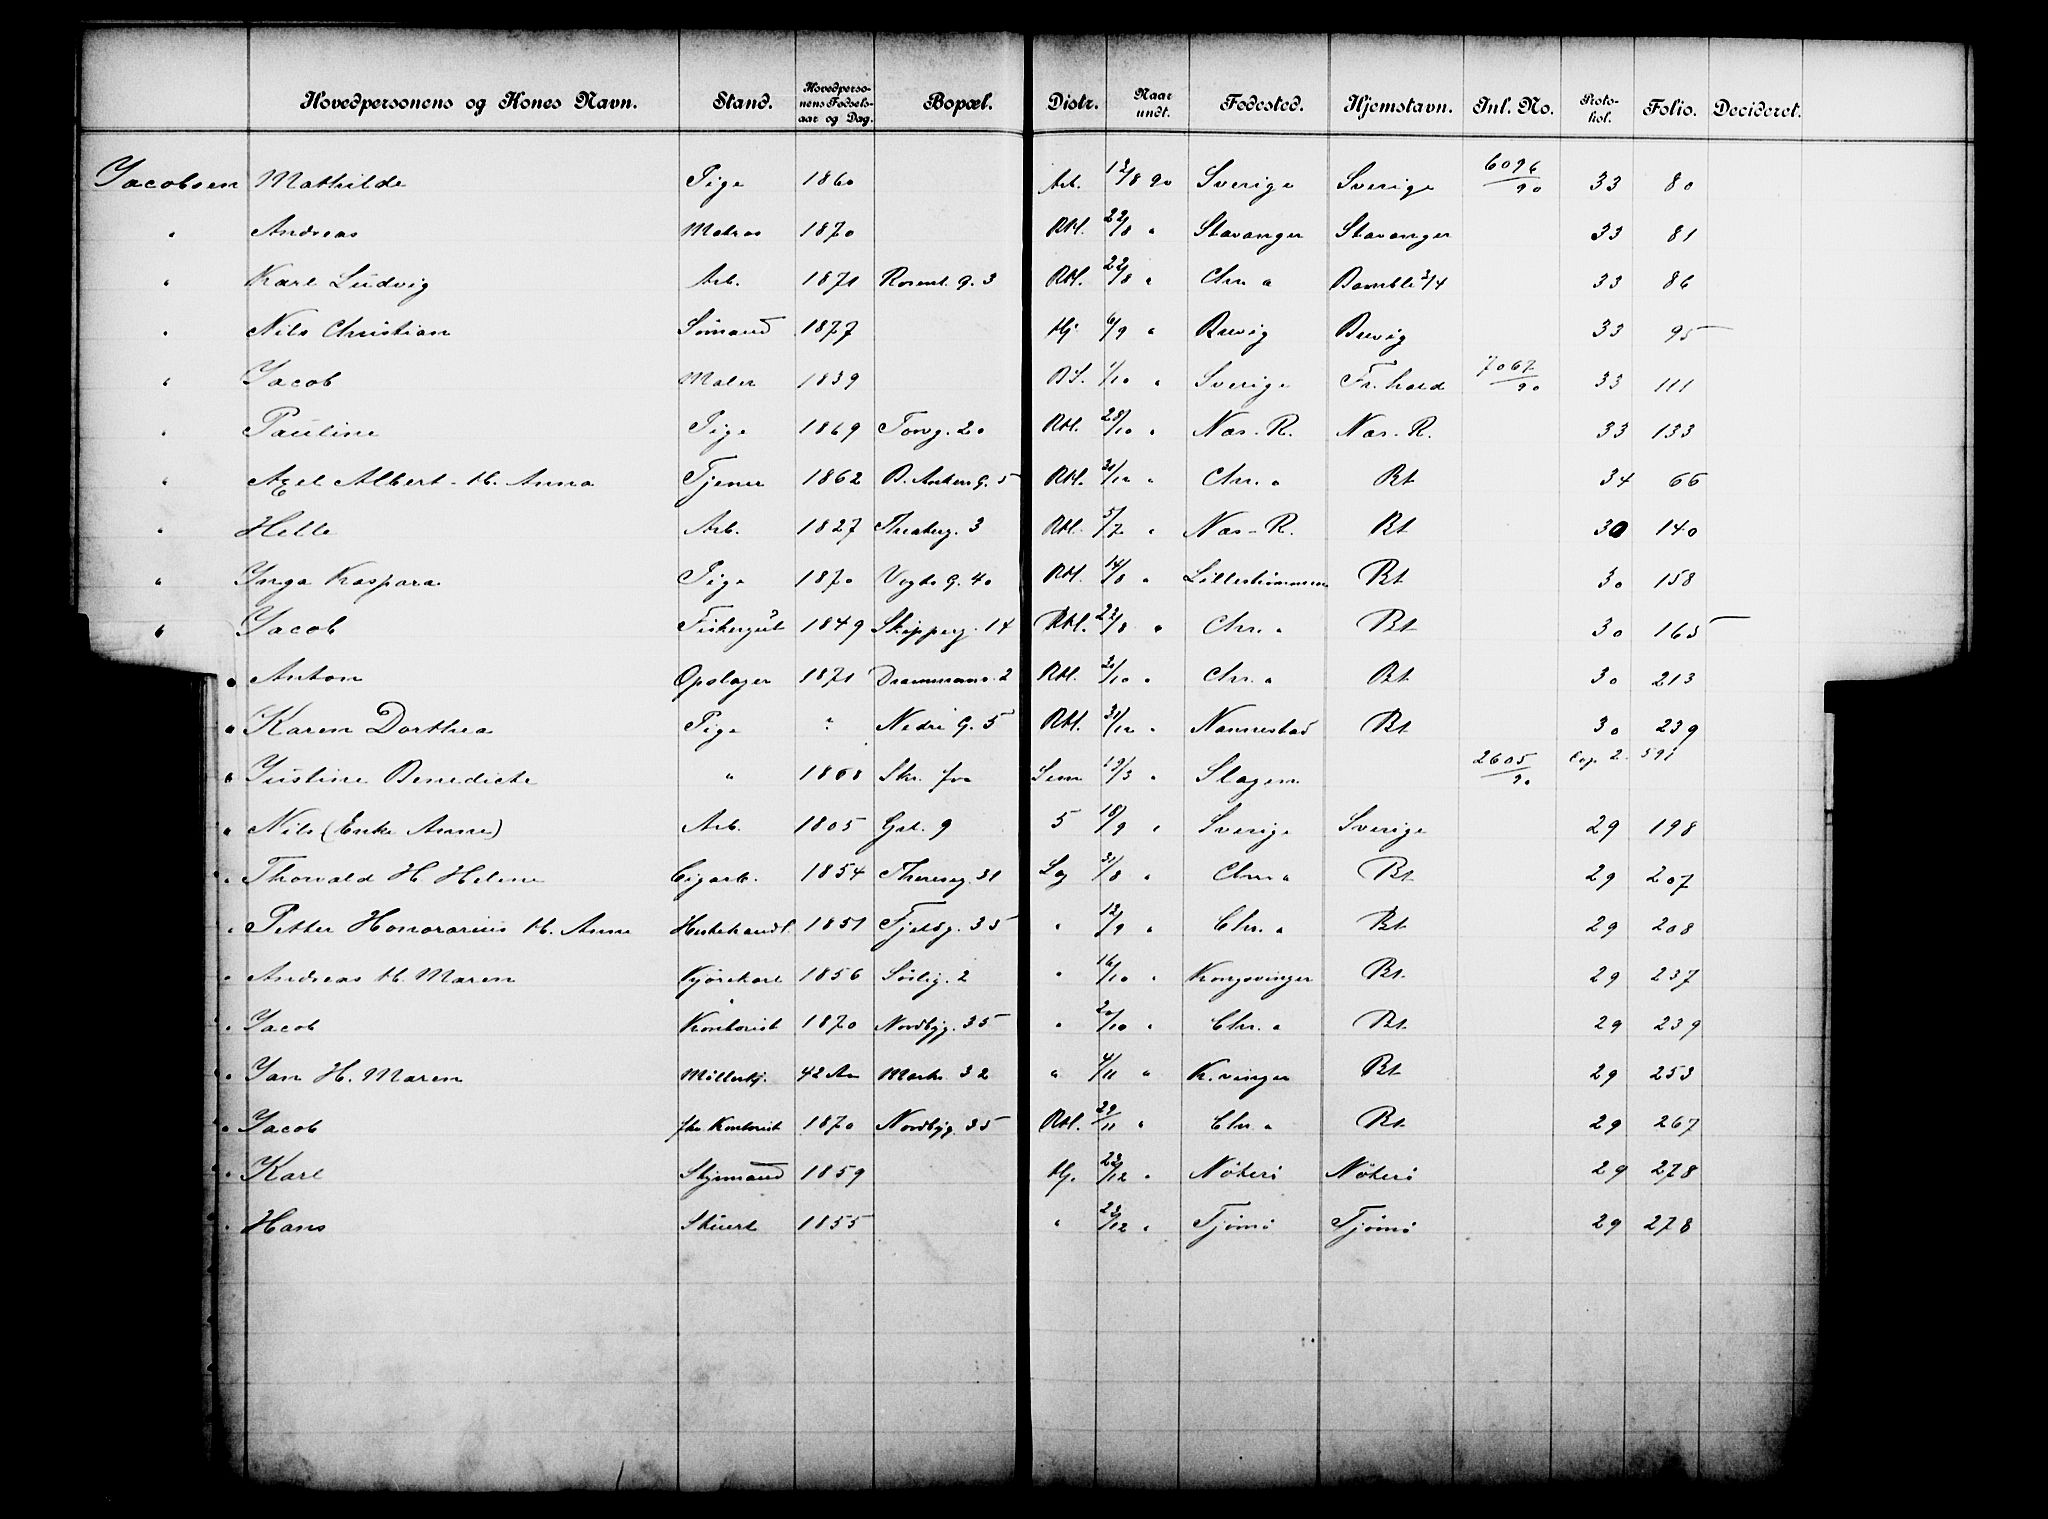 Hovedpersonens og Kones Navn. Stand. Hovedpersonens Fødselsaar og Dag. Bopæl. Distr. Naar undt. Fødested. Hjemstavn. Inl. No. Protokol. Folio. Decideret.
Jacobsen Mathilde Pige 1860 Arb. 12/8 90 Sverige Sverige 6096/90 33 80
" Andreas Matros 1870 Rbl. 22/8 " Stavanger Stavanger 33 81
" Karl Ludvig Arb. 1871 Rosenk. G. 3 Rbl. 22/8 " Chr. a Bamble 3/4 33 86
" Nils Christian Sömand 1877 Hj. 6/9 " Brevig Brevig 33 95
" Jacob Maler 1839 1/10 " Sverige Fr.hald 7067/90 33 111
" Pauline Pige 1869 Torvg. 20 Rbl. 28/10 " Næs-R. Næs-R. 33 133
" Axel Albert H. Anna Tjener 1862 B. Ankers G. 5 Rbl. 31/12 " Chr. a Bt 34 66
" Helle Arb. 1827 3 Rbl. 5/7 " Næs-R. Bt 30 140
" Inga Kaspara Pige 1870 Vogts G. 40 Rbl. 14/8 " Lilleströmmen Bt 30 158
" Jacob 1849 Skipperg. 14 Rbl. 22/8 " Chr. a Bt 30 165
" Anton Opslager 1871 Drammensv. 2 Rbl. /10 " Chr. a Bt 30 213
" Karen Dorthea Pige " Nedre G. 5 Rbl. 31/12 " Nannestad Bt 30 239
" Justine Benedicte " 1868 Skr. fra Sem 19/3 " Slagen 2605/90 Cop. 2. 591
" Nils (Enke Anne) Arb. 1805 9 5 18/9 " Sverige Sverige 29 198
" Thorvald H. Helene Cigarb. 1854 Theresg. 31 Lag 31/8 " Chr. a Bt 29 207
" Petter Honorarius H. Anne Hestehandl. 1851 35 " 12/9 " Chr. a Bt 29 208
" Andreas H. Maren Kjörekarl 1856 Sörlig. 2 " 16/10 " Kongsvinger Bt. 29 237
" Jacob Kontorist 1870 Nordbyg. 35 " 20/10 " Chr. a Bt 29 239
" Jan H. Maren Möllerkj. 42 Aar Mark. 32 " 4/11 " K.vinger Bt 29 253
" Jacob fhv. Kontorist 1870 Nordbyg. 35 Rbl. 29/11 " Chr. a Bt 29 267
" Karl Styrmand 1859 Hj. 23/12 " Nöterö Nöterö 29 278
" Hans Stuert 1855 " 23/12 " Tjömö Tjömö 29 278